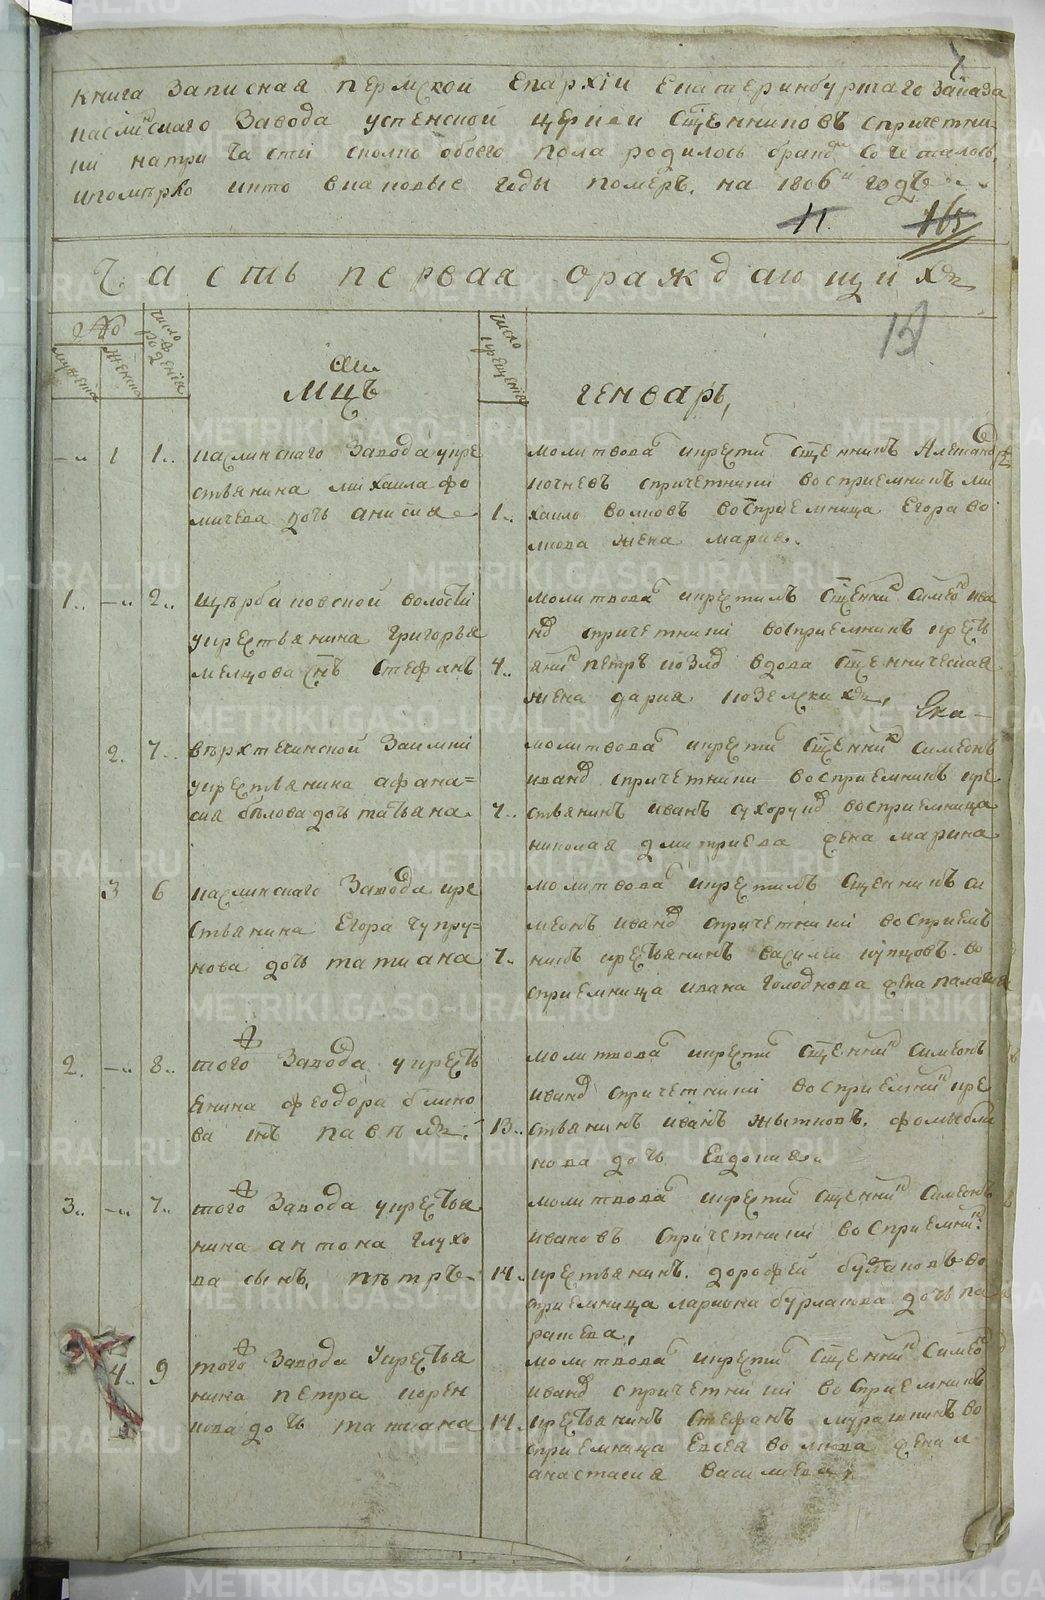 книга записная пермской епархіи екатеринбургаго заказа
каслинскаго завода успенской церкви сщенниковъ спричетни-
ки натри части сколко обоего пола родилось бракомъ сочеталось
иколико и въ каковые годы померъ. на 1806й годъ
11. 165
Часть первая ораждающихся
13
число рожденія
мужеска
женска
число крещения
Мцъ
генварь,
1 1.. каслинскаго завода укре
стьянина михаила фо
мичева дочь анисия
молитвова и крести сщенникъ Александръ
кочневъ спричетники восприемникъ ми
1.. хаило волковъ восприемница Егора во
лкова жена мария.
1.. 2.. щербаковской волости
укрестьянина григорья
мелцова снъ стефанъ
молитвова и крестилъ сщенникъ симеонъ ива
новъ спричетники восприемникъ кресть
4.. янинъ петръ козловъ вдова сщенническая
жена дария поземских,
Ека-
2. 7.. верхтечинской заимки
укрестьянина афана=
сия белова дочь татьяна
молитвова и крести сщенникъ симеонъ
ивановъ спричетники восприемникъ кре
7.. стьянинъ иванъ сухоруковъ восприемница
николая дмитриева жена марина
3 6 каслинскаго завода кре
стьянина Егора чупру-
нова дочь татиана
молитвова и крестилъ сщенникъ си
меонъ ивановъ спричетники восприем
7.. никъ крестьянинъ василеи купцовъ. во
сприемница ивана голоднова жена палагия
2. 8.. того завода укресть
янина феодора блино
ва снъ павелъ
молитвова и крести сщенникъ симеонъ
ивановъ спричетники восприемникъ кре
13.. стьянинъ иванъ жытковъ. фомы бли
нова дочь Евдокия
3.. 7.. того завода укрестья
нина антона глухо
ва сынъ, петръ
молитвова и крести сщенникъ симеонъ
ивановъ спричетники восприемникъ
14.. крестьянинъ. дорофей булановъ во
сприемница лариона бурлакова дочь па
ракева,
4.. 9 того завода укрестья
нина петра корен
кова дочь татиана
молитвова и крести сщенникъ симеонъ
ивановъ спричетники восприемникъ
14.. крестьянинъ стефанъ мурашкинъ во
сприемница Евсея волкова жена
анастасия василиева,
METRIKI.GASO-URAL.RU